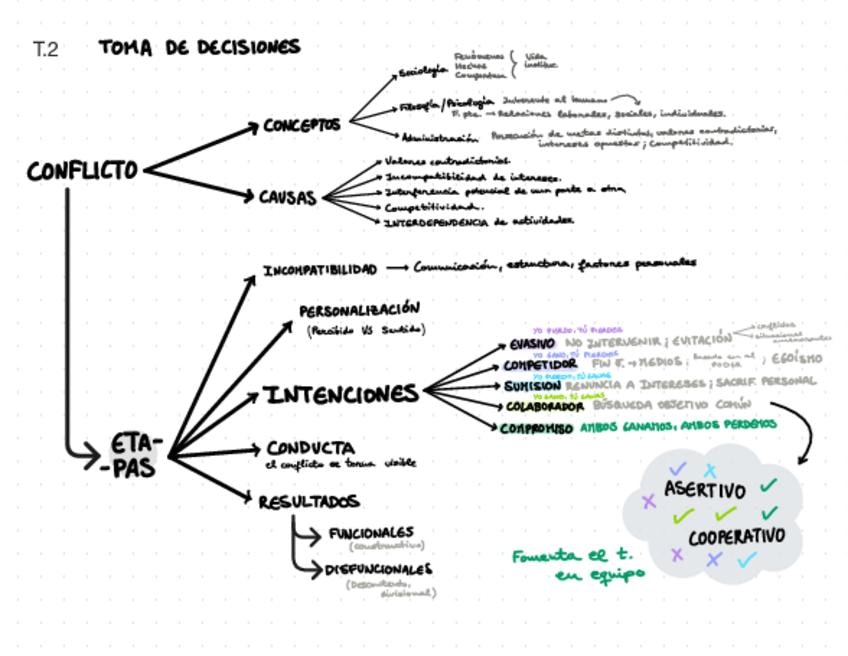 T.2 TOMA DE DECISIONES
CONFLICTO
CONCEPTOS
Sociología
Fenómenos
Hechos
Comportam
Vida
instituc.
Filosofía/Psicología Inherente al humano
F. pte. → Relaciones laborales, sociales, individuales.
Administración Persecución de metas distintas, valores contradictorios,
intereses opuestos; Competitividad.
CAUSAS
Valores contradictorios.
Incompatibilidad de intereses.
Interferencia potencial de una parte a otra
Competitividad.
INTERDEPENDENCIA de actividades.
ETA-
-PAS
INCOMPATIBILIDAD → Comunicación, estructura, factores personales
PERSONALIZACIÓN
(Percibido VS Sentido)
INTENCIONES
YO PIERDO, TÚ PIERDES
EVASIVO NO INTERVENIR; EVITACIÓN
conflictos
situaciones
YO GANO, TÚ PIERDES
COMPETIDOR FIN F. → MEDIOS; PODER; EGOÍSMO
YO PIERDO, TÚ GANAS
SUMISION RENUNCIA A INTERESES; SACRIF. PERSONAL
YO GANO, TÚ GANAS
COLABORADOR BÚSQUEDA OBJETIVO COMÚN
COMPROMISO AMBOS GANAMOS, AMBOS PERDEMOS
CONDUCTA
el conflicto se torna visible
RESULTADOS
FUNCIONALES
(constructivo)
DISFUNCIONALES
(Descontento,
divisional)
ASERTIVO
COOPERATIVO
Fomenta el t.
en equipo